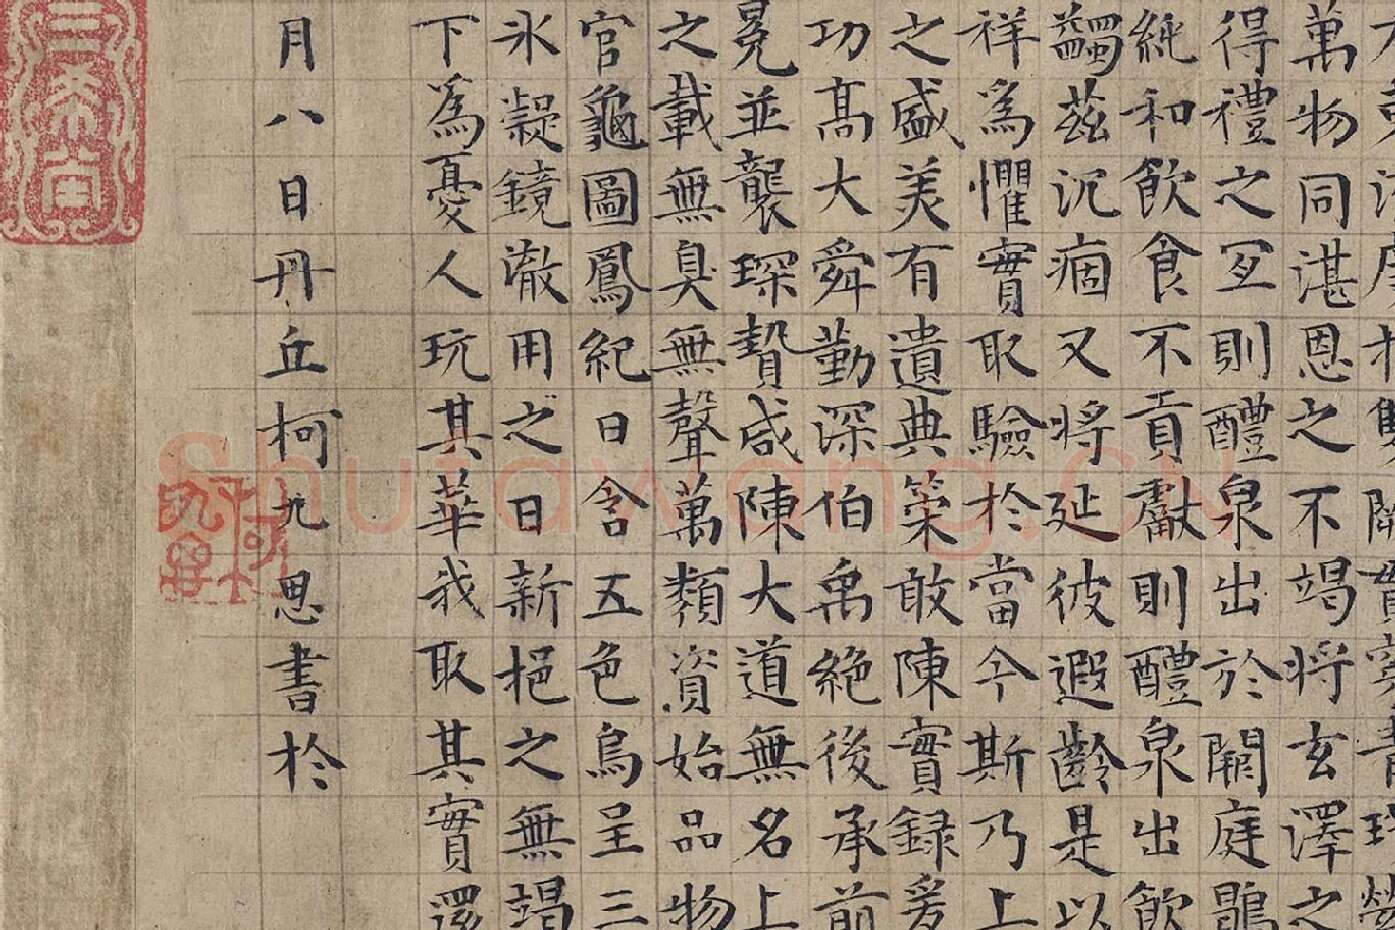 萬物同湛恩之不竭將玄澤之
得禮之冝則醴泉出於闕庭鶡
純和飲食不貢獻則醴泉出飲
蠲茲沉痼又將延彼遐齡是以
祥爲懼實取驗於當今斯乃上
之盛美有遺典策敢陳實録爰
功高大舜勤深伯禹絶後承前
冕並襲琛贄咸陳大道無名上
之載無臭無聲萬類資始品物
官龜圖鳳紀日含五色烏呈三
氷凝鏡澈用之日新挹之無竭
下爲憂人玩其華我取其實還
月八日丹丘柯九思書於
三希堂
柯九思
Shufawang.CN